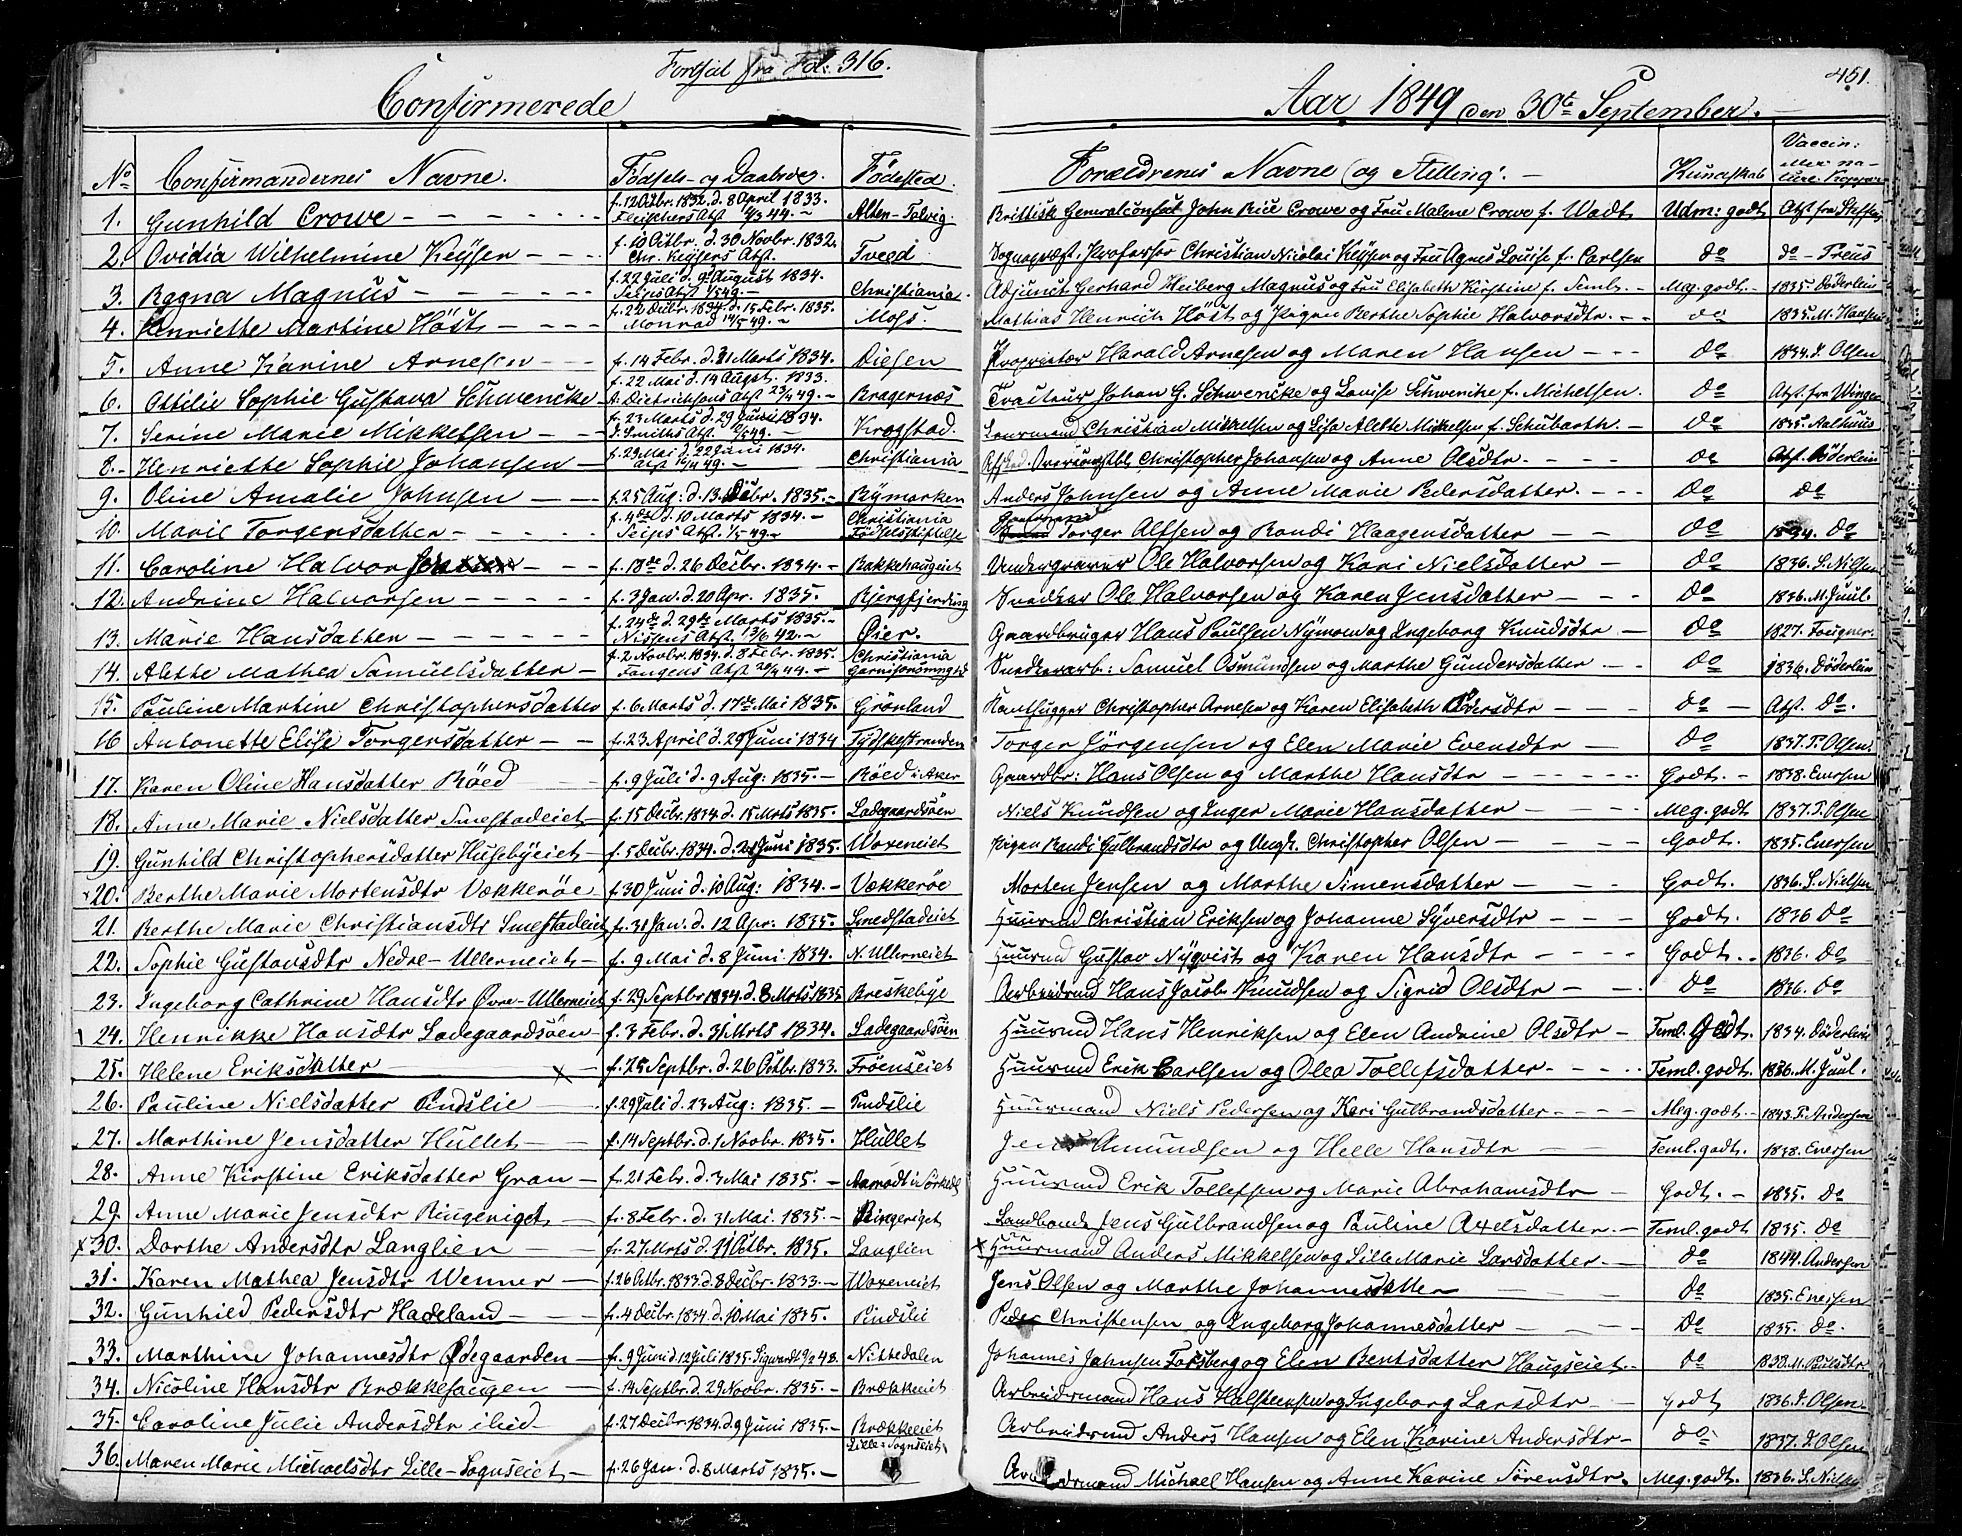 Fortsat fra Fol: 316.
451.
Confirmerede
Aar 1849 den 30te September.
No Confirmandernes Navne. Födsels- og Daabsdag. Födested. Forældrenes Navne (og Stilling). Kundskab Vaccin: eller na- turl. Kopper
1. Gunhild Crowe f. 12 Octbr. 1832. d. 8 April 1833. Fleischers Atst 4/3 44. Alten-Talvig. Brittisk Generalconsul John Rice Crowe og Fru Malene Crowe f. Wadt Udm: godt Atst fra Steffens
2. Ovidia Wilhelmine Keysen f. 10 Octbr. d. 30 Novbr. 1832. Chr. Keysers Atst. Tveed Sognepræst, Professor Christian Nicolai Keysen og Fru Agnes Louise f. Carlsen do do - Preus
3. Ragna Magnus f. 22 Juli d. 9 August 1834. Seips Atst 1/5 49. Christiania. Adjunct Gerhard Heiberg Magnus og Fru Elisabeth Kirstine f. Semb. Meg. godt. 1835 Döderlein
4. Henriette Martine Höst f. 22 Decbr. 1834. d. 15 Febr. 1835. Monrad 14/5 49. Moss. Mathias Henrich Höst og Pigen Berthe Sophie Halvorsdtr. do 1835. M. Hansen
5. Anne Karine Arnesen f. 14 Febr. d. 31 Marts 1834. Diesen Proprietær Harald Arnesen og Maren Hansen do 1834. P. Olsen
6. Ottilie Sophie Gustava Schwencke f. 22 Mai d. 14 Augst. 1833. A. Dietrichsons Atst 23/4 49. Bragernæs Tracteur Johan G. Schwencke og Lovise Schwencke f. Michelsen. do Atst. fra Winger
7. Serine Marie Mikkelsen f. 23 Marts d. 29 Juni 1834. J. Smiths Atst. 11/5 49. Krogstad. Lensmand Christian Mikkelsen og Lisa Alette Mikkelsen f. Schubarth. do 1835. Aalhuus
8. Henriette Sophie Johansen f. 29 Mai d. 22 Juni 1834. Atst 16/4 49. Christiania Afsked. Overconstbl Christopher Johansen og Anne Olsdtr. do Atst. Döderlein
9. Oline Amalie Johnsen f. 25 Aug: d. 13 Decbr. 1835. Bymarken Anders Johnsen og Anne Marie Pedersdatter. do do
10. Marie Torgersdatter f. 4de d. 10 Marts 1834. Seips Atst. 1/5 49. Christiania Fødselsstiftelse Torger Alfsen og Randi Haagensdatter do 1834. do
11. Caroline Halvorsen f. 18de d. 26 Decbr. 1834. Bakkehaugeiet Vendergraver Ole Halvorsen og Kari Nielsdatter do 1836. S. Nielsen
12. Andrine Halvorsen f. 3 Jan. d. 20 Apr. 1835. Bjergfjerding Snedker Ole Halvorsen og Karen Jensdatter do 1836. M. Juul.
13. Marie Hansdatter f. 24de d. 29de Marts 1835. Nissens Atst. 13/6 42. Öier. Gaardbruger Hans Poulsen Nymoen og Ingeborg Knudsdtr do 1827. Fougner.
14. Alette Mathea Samuelsdatter f. 2 Novbr. 1834. d. 8 Febr. 1835. Fangens Atst 20/4 44. Christiania Garnisonsmenighed Snedkerarb: Samuel Osmundsen og Marthe Gundersdatter. do 1836. Döderlein
15. Pauline Martine Christophersdatter f. 6 Marts d. 17de Mai 1835. Grönland Kanthugger Christopher Arnesen og Karen Elisabeth Iversdtr do Atst. do.
16 Antonette Elise Torgersdatter f. 23 April d. 29 Juni 1834 Tydskestranden Torger Jörgensen og Elen Marie Evensdtr do 1837. P. Olsen.
17. Karen Oline Hansdatter Röed f. 9 Juli d. 9 Aug: 1835. Röed i Aker Gaardbr: Hans Olsen og Marthe Hansdtr Godt. 1838. Enersen
18. Anne Marie Nielsdatter Smestadeiet f. 15 Decbr. 1834 d. 15 Mrts 1835. Ladegaardsöen Niels Knudsen og Inger Marie Hansdatter Meg. godt 1837. P. Olsen
19. Gunhild Christophersdatter Husebyeiet f. 5 Decbr. 1834. d. 21 Juni 1835. Woxeneiet Pigen Randi Gulbrandsdtr og Ungk. Christopher Olsen Godt. 1835. Enersen
x20. Berthe Marie Mortensdtr Vækkeröe f. 30 Juni d. 10 Aug: 1834. Vækkeröe Morten Jensen og Marthe Simensdatter Godt. 1836. S. Nielsen
21. Berthe Marie Christiansdtr Smestadeiet f. 31 Jan. d. 12 Apr. 1835. Smedstadeiet Huusmd Christian Eriksen og Johanne Syversdtr Godt. 1836 do
22. Sophie Gustavsdtr Nedre-Ullerneiet f. 9 Mai d. 8 Juni 1834. N. Ullerneiet Huusmd Gustav Nyqvist og Karen Hansdtr Godt. 1836. do
23. Ingeborg Cathrine Hansdtr Övre-Ullerneiet f. 29 Septbr 1834. d. 8 Mrts 1835 Breskebye Arbeidsmd Hans Jacob Knudsen og Sigrid Olsdtr do 1836. do
24. Henrikke Hansdtr Ladegaardsöen f. 3 Febr. d. 31 Mrts 1834. Ladegaardsöen Huusmd Hans Henriksen og Elen Andrine Olsdtr Teml. Godt. 1834. Döderlein
25. Helene Eriksdatter x f. 25 Septbr. d. 26 Octbr. 1833. Fröenseiet Huusmd Erik Carlsen og Olea Tollefsdatter. Teml. godt. 1836. M. Juul.
26. Pauline Nielsdatter Pindslie f. 29 Juli d. 23 Aug: 1835. Pindslie Huusmand Niels Pedersen og Kari Gulbrandsdatter Meg. godt. 1843. P. Andersen
27. Marthine Jensdatter Hullet f. 14 Septbr. d. 1 Novbr. 1835. Hullet Jens Amundsen og Helle Hansdtr Teml. godt. 1838. Enersen
28. Anne Kirstine Eriksdatter Gran f. 21 Febr. d. 3 Mai 1835. Aamodt i Sörkedl Huusmd Erik Tollefsen og Marie Abrahamsdtr Godt. 1835. do
29. Anne Marie Jensdtr Ringeriget f. 8 Febr. d. 31 Mai. 1835. Ringeriget Landbonde Jens Gulbrandsen og Pauline Axelsdatter. Teml. godt 1835. do
x30. Dorthe Andersdtr Langlien f. 27 Mrts d. 11 Octbr. 1835. Langlien x Huusmand Anders Mikkelsen og Lille Marie Larsdatter. do 1844. Andersen
31. Karen Mathea Jensdtr Wenner f. 26 Octbr. 1833. d. 8 Decbr. 1833. Woxeneiet Jens Olsen og Marthe Johannesdatter do 1835. Enersen
32. Gunhild Pedersdtr Hadeland f. 4 Decbr. 1834 d. 10 Mai 1835. Pindslie Peder Christensen og Ingeborg Johannesdatter do 1835. do.
33. Marthine Johannesdtr Ödegaarden f. 9 Juni d. 12 Juli 1835. Sigwardt 9/2 48. Nittedalen Johannes Johnsen Forsberg og Elen Bentsdatter Haugseiet do 1838. M. Nilsdtr
34. Nicoline Hansdtr Brækkehaugen f. 14 Septbr. d. 29 Novbr. 1835. Brækkeiet Arbeidsmand Hans Halstensen og Ingeborg Larsdtr Godt 1836. P. Olsen.
35. Caroline Julie Andersdtr ibid f. 27 Decbr. 1834 d. 9 Juni 1835. Brækkeiet Arbeidsmd Anders Hansen og Elen Karine Andersdtr do. 1837. P. Olsen
36. Maren Marie Michaelsdtr Lille-Sogneseiet f. 26 Jan. d. 8 Marts 1835. Lille-Sogneseiet Arbeidsmand Michael Hansen og Anne Karine Sörensdtr. Meg. godt. 1836. S. Nielsen